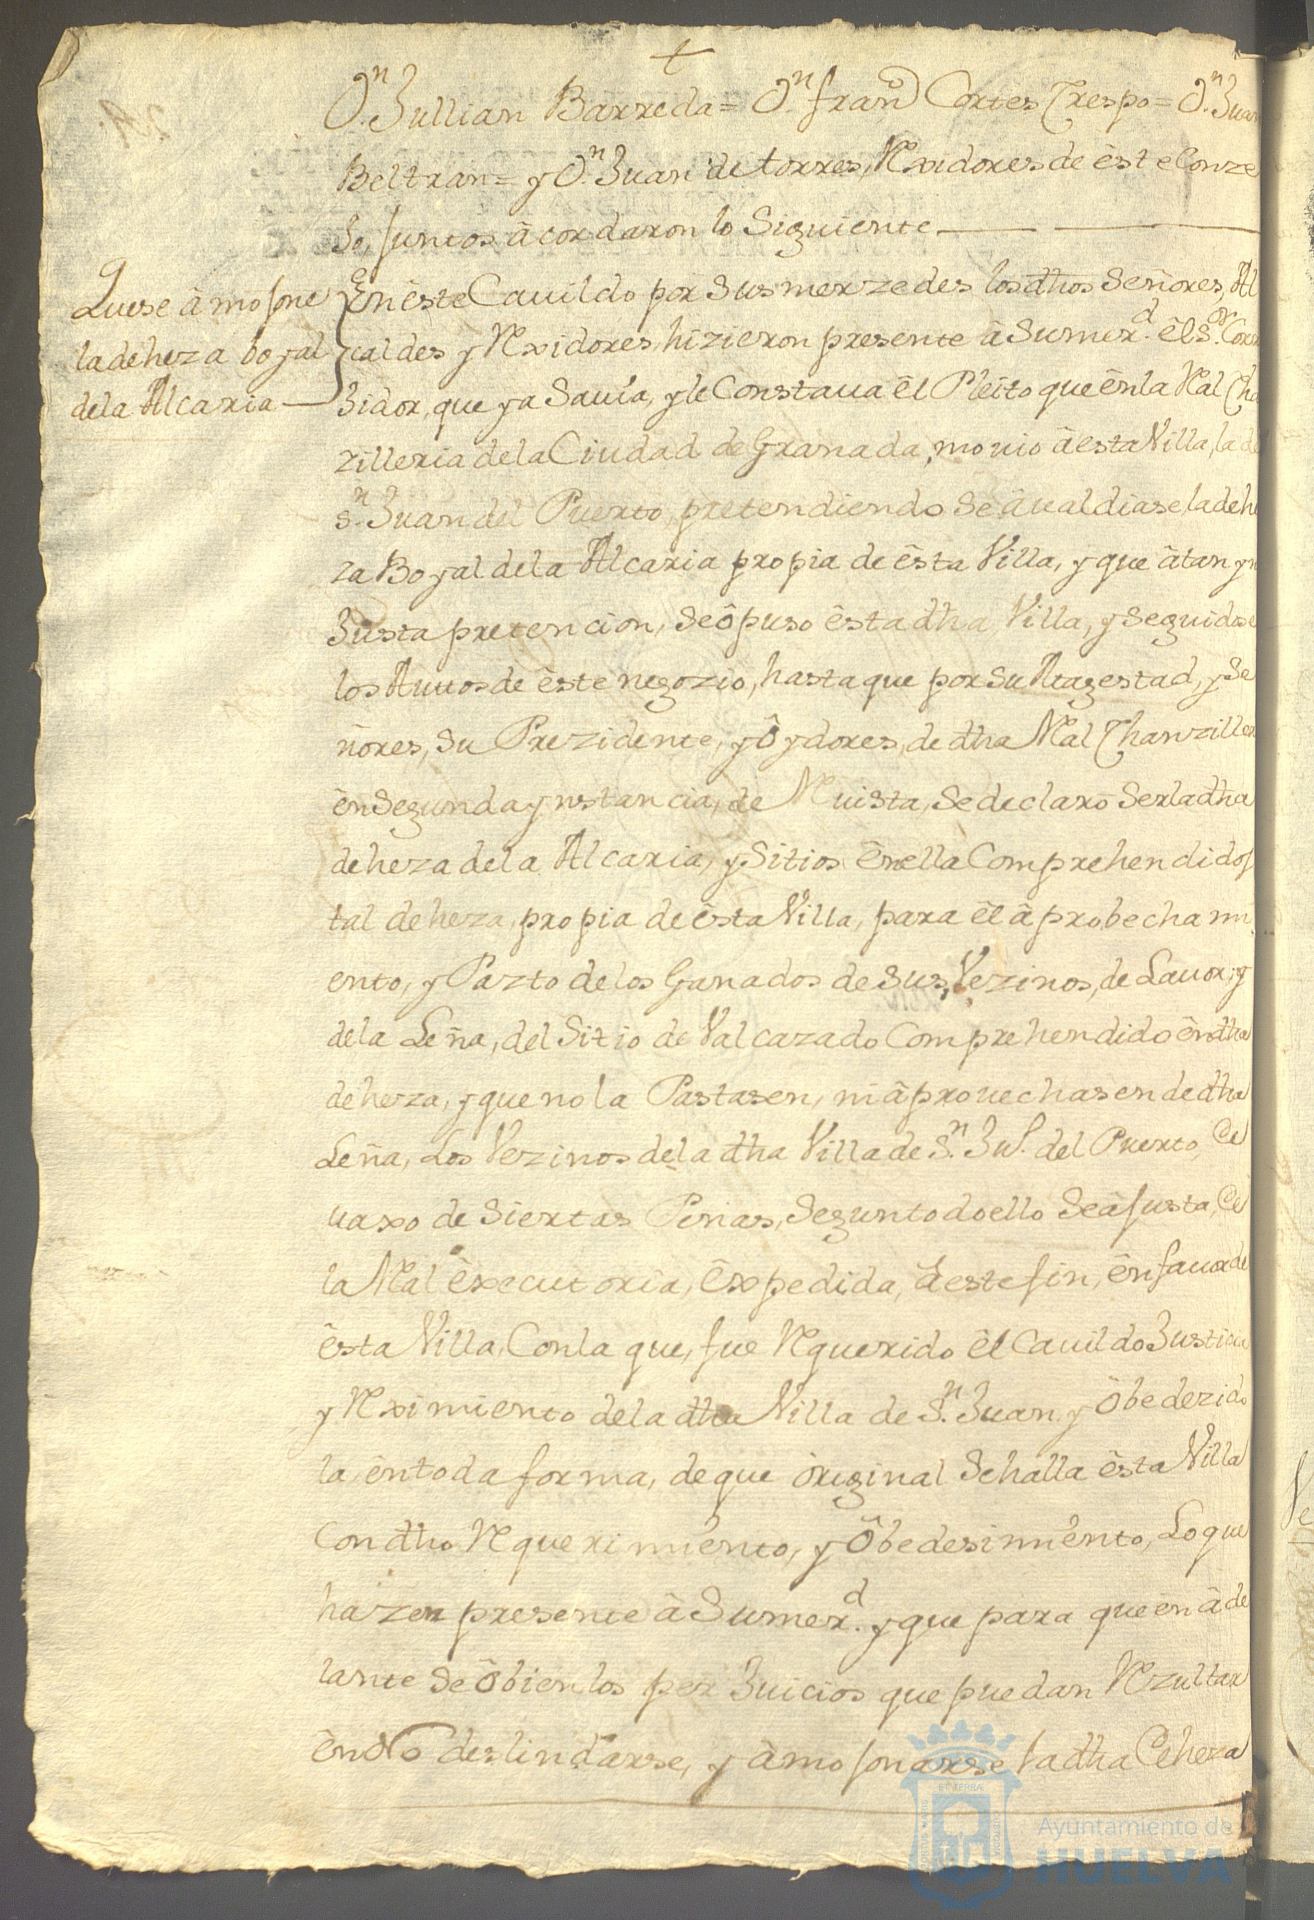 +
Dn. Jullian Barreda = Dn. Franco Cortes Crespo = Dn. Juan
Beltran = y Dn. Juan de torres, Rexidores de êste Conze
Jo, Juntos âcordaron lo Siguiente
Que se âmojone
la deheza boyal
de la Alcaria
En êste Cauildo por Sus merzedes los dhos Señores, Al
caldes y Rexidores, hizieron presente â Sumerd. êl Sor. Corre
Jidor, que ya Sauia, y le Constaua êl Pleito que ên la Ral Cha
zilleria de la Ciudad de Granada, mouio â esta Villa, la de
Sn. Juan del Puerto, pretendiendo Se âualdiase la dehe
za Boyal de la Alcaria propia de êsta Villa, y que â tan yn
Justa pretencion, Se ôpuso êsta dha Villa, y Seguidose
los Autos de êste negozio, hasta que por Su Magestad, y Se
ñores, Su Prezidente, y Ôydores, de dha Ral Chanzilleri
ên Segunda ynstancia, de Reuista, Se declarô Ser la dha
deheza de la Alcaria, y Sitios ên ella Comprehendidos
tal deheza, propia de êsta Villa, para êl âprobechami
ento, y Pazto de los Ganados de Sus Vezinos, de Lauor, y
de la Leña, del Sitio de Valcazado Comprehendido ên dha
deheza, y que no la Pastasen, ni âprouechasen de dha
Leña, Los Vezinos de la dha Villa de Sn. Ju. del Puerto, De
uaxo de Siertas Penas, Segun todo ello Se âJusta, De
la Ral êxecutoria, Êxpedida, â este fin, ên fauor de
êsta Villa, Con la que, fue Requerido êl Cauildo Justicia
y Reximiento de la dha Villa de Sn. Juan y ôbedezido
la, ên toda forma, de que ôriginal Se halla êsta Villa
Con dho Requerimiento, y Ôbedesimiento, Lo que
hazen presente â Sumerd. y que para que ên âde
lante Se ôbien los perJuicios que puedan Rezultar
ên No deslindarse, y âmoJonarse la dha Deheza
Ayuntamiento de
HUELVA